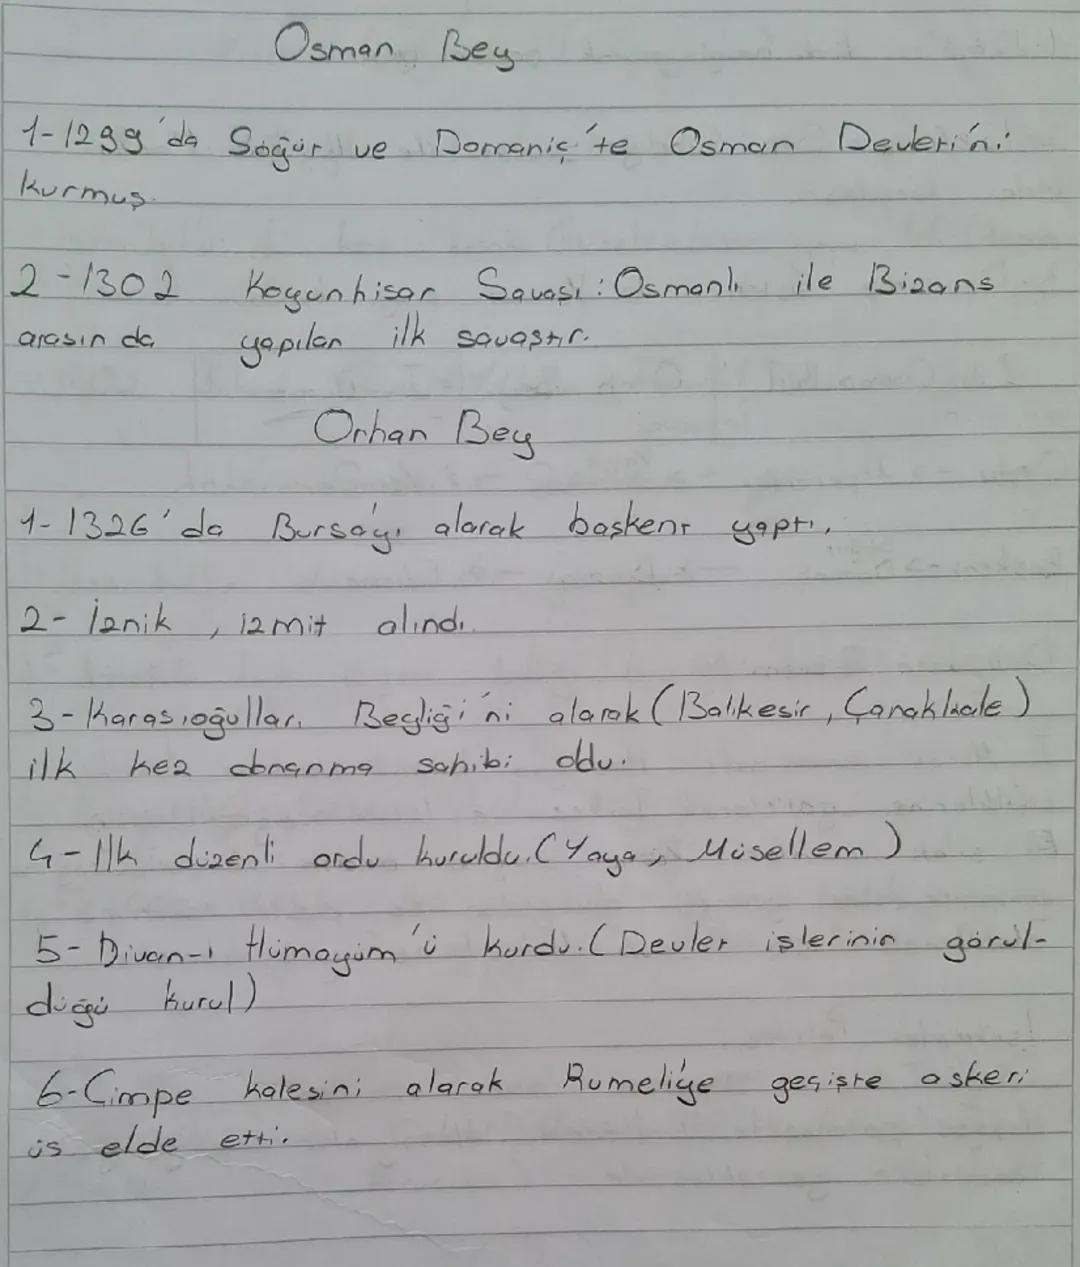 Osman Bey
1-1299'da Söğüt ve Domaniç'te Osman Devleti'ni
kurmuş.
2-1302 Koyunhisar Savaşı: Osmanlı ile Bizans
arasında yapılan ilk savaştır.
Orhan Bey
1-1326'da Bursa'yı alarak başkent yaptı.
2- İznik, izmit alındı.
3-Karasioğulları Beyliği'ni alarak (Balıkesir, Çanakkale)
ilk kez donanma sahibi oldu.
4-Ilk düzenli ordu kuruldu. (Yaya, Müsellem)
5-Divan-ı Hümayüm'ü kurdu. (Devlet işlerinin görül-
düğü kurul)
6-Çimpe kalesini alarak Rumeli'ye geçişte askeri
üs elde etti.